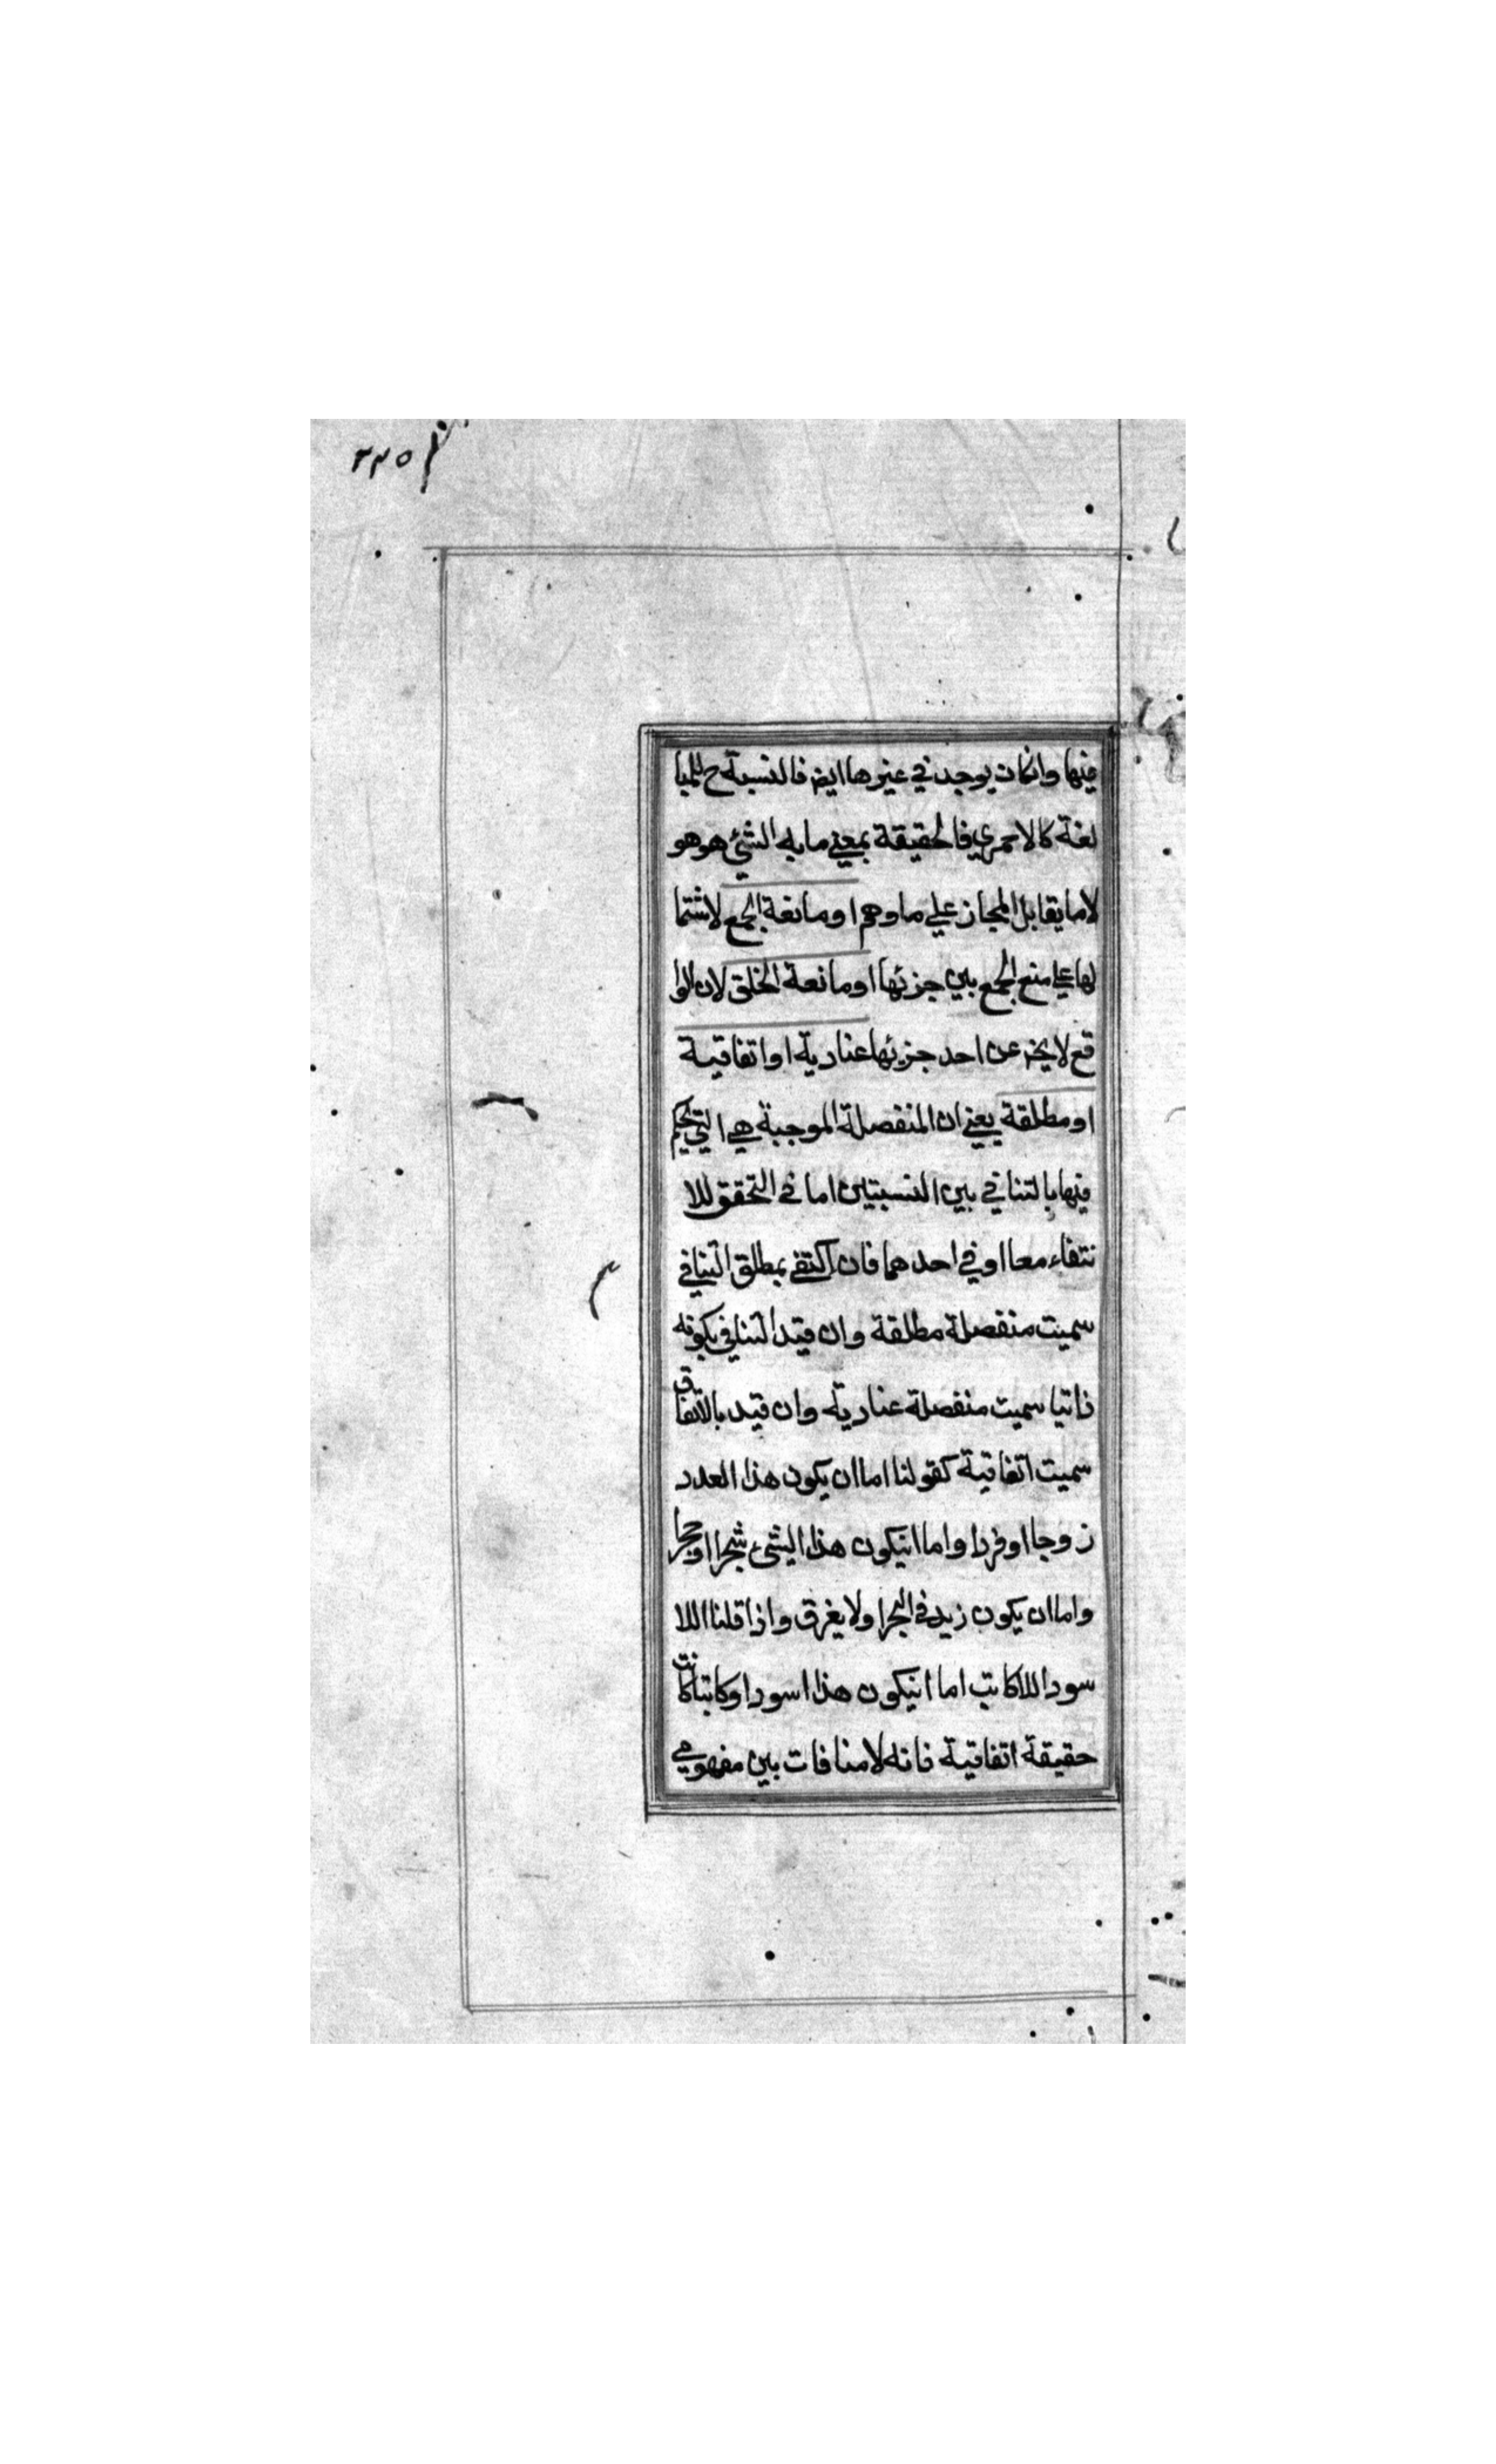 ٢٢٥
فيها وانكانت يوجد في غيرها ايض فالنسبة ح للمبا
لغة كالاحمري فالحقيقة بمعني ما به الشئ هو هو
لا ما يقابل المجاز علي ما وهم او مانعة الجمع لاشتما
لها علي منع الجمع بين جزئها او مانعة الخلق لان الوا
قع لا يخ عن احد جزئها عنادية او اتفاقية
او مطلقة يعني ان المنفصلة الموجبة هي التي يحكم
فيها بالتنافي بين النسبتين اما في التحقق للا
نتفاء معا او في احدهما فان اكتفي بمطلق التنافي
سميت منفصلة مطلقة وان قيد التنافي بكونه
ذاتيا سميت منفصلة عنادية وان قيد بالاتفاق
سميت اتفاقية كقولنا اما ان يكون هذا العدد
زوجا او فردا واما انيكون هذا الشئ شجرا او حجرا
واما ان يكون زيد في البحر او لا يغرق واذا قلنا اللا
سود اللاكاتب اما انيكون هذا اسود او كاتبا كانت
حقيقة اتفاقية فانه لا منافات بين مفهومي